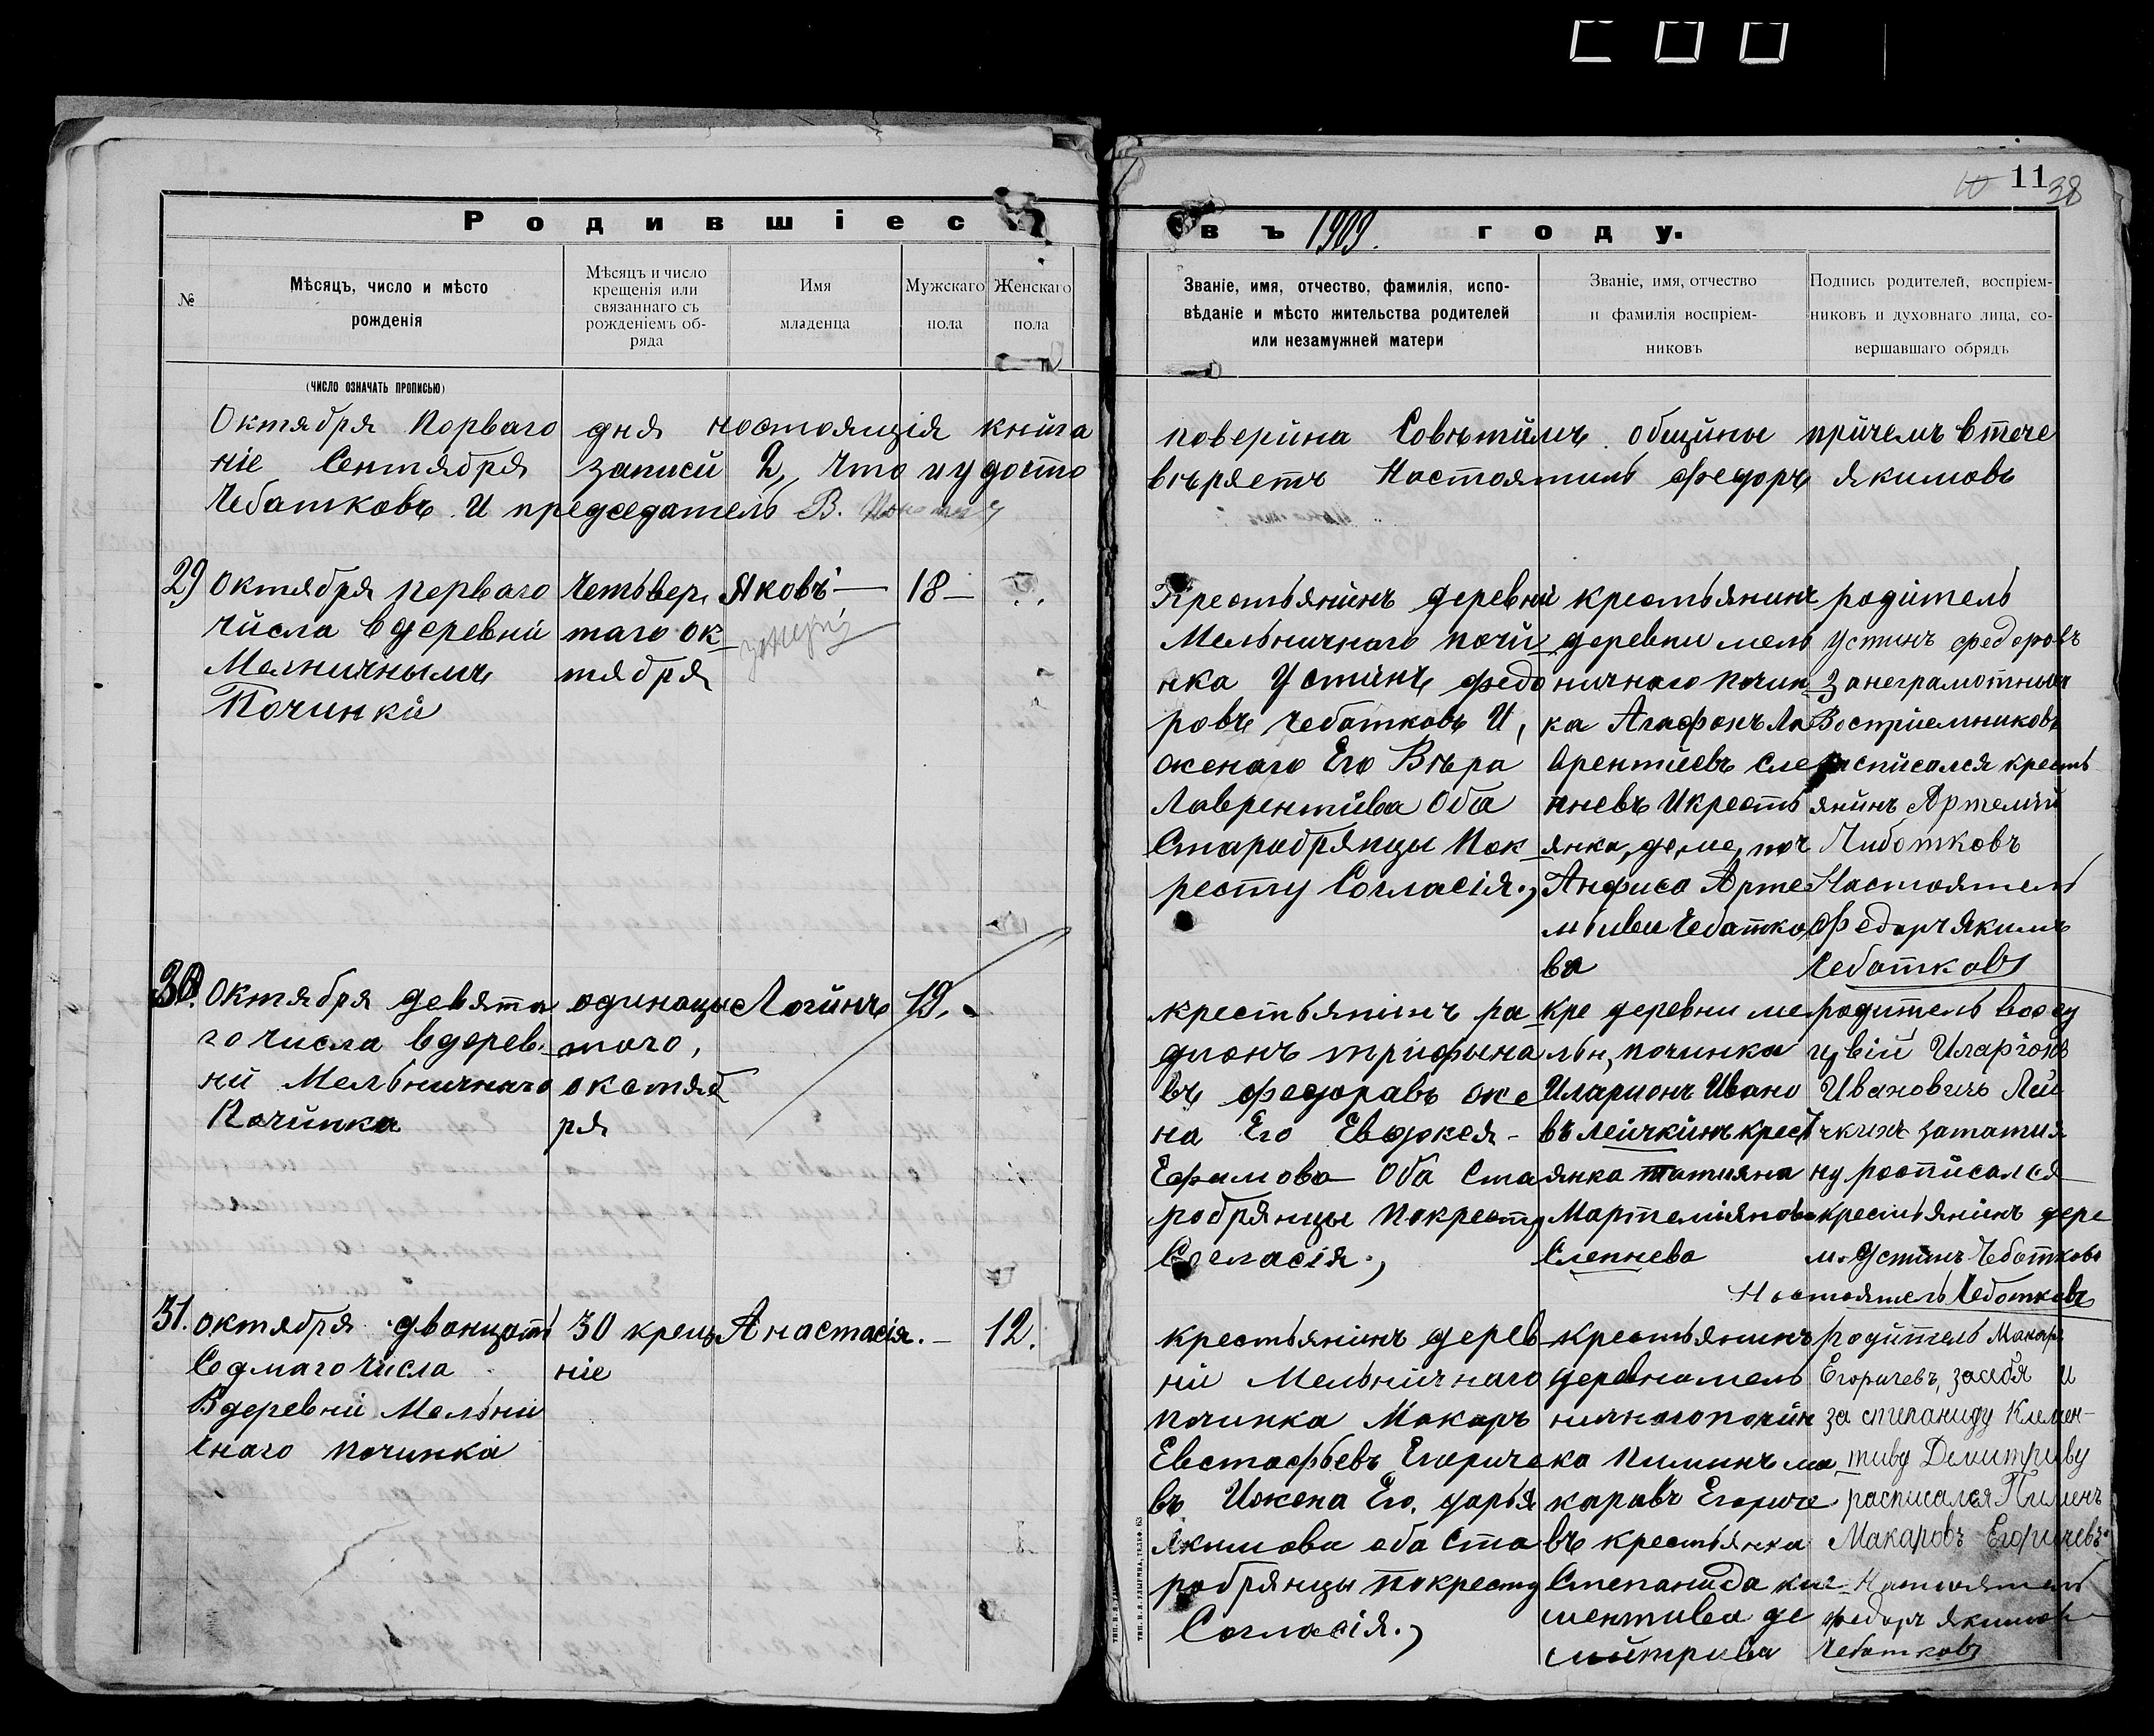 11
38
Родившіеся
въ 1909. году.
№
Мѣсяцъ, число и мѣсто
рожденія
Мѣсяцъ и число
крещенія или
связаннаго съ
рожденіемъ об-
ряда
Имя
младенца
Мужскаго
пола
Женскаго
пола
Званіе, имя, отчество, фамилія, испо-
вѣданіе и мѣсто жительства родителей
или незамужней матери
Званіе, имя, отчество
и фамилія воспріем-
никовъ
Подпись родителей, воспріем-
никовъ и духовнаго лица, со-
вершавшаго обрядъ
(число означать прописью)
Октября порваго дня ностоящія книга поверина Совѣтимъ общины причемъ втече
ніе Сентября записи 2, что и удосто вѣряетъ Настоятиль Федоръ якимовъ
Чебатковъ. И председатель В.
29
Октября перваго
числа вдеревни
Мелничнымъ
Починки
Четьвер
таго ок-
тября
Яковъ —
18 —
Крестьянинъ деревни
Мельничнаго почи-
нка Устинъ федо
ровъ Чебатковъ И,
женаго Его Вѣра
Лаврентива Оба
Старобрянцы Пок-
ресту Согласія.,
крестьянинъ
деревни мель
ничного почин
ка Агафонъ Ла
врентиевъ Сле
пневъ И кресть
янка, де, ме, поч
Анфиса Арте
мьиви Чебатко
ва
родитель
Устинъ федоровъ
Занеграмотныхъ
Восприемниковъ
росписался кресть
янинъ Артемий
Чиботковъ
Настоятель
Федоръ Якимъ
Чебатковъ
30.
Октября девята
го числа вдерев-
ни Мельничнаго
Починка
одинацы
таго,
октяб
ря
Логинъ
19.
крестьянинъ ра-
дионъ трифына
въ федоравъ же
на Его Евдокея-
Ефимова Оба Ста
робрянцы Покресту
Согласія.,
кре деревни ме
льн, починка
Иларионъ Ивано
въ Лейчкинъ крест
янка татияна
Мартемiянова
Слепнева
родитель
Иларiонъ
Ивановичъ Лей
чкинъ зататия
ну росписался
крестьянинъ дере
м. Устинъ Чеботковъ
Настоятель Чеботковъ
31.
октября двацать
Седмаго числа
Вдеревни Мельни
чнаго починка
30 крещ
ніе
Анастасія. —
12.
крестьянинъ дерев
ни Мельничнаго
починка Макаръ
Евстафьевъ Егориче
въ Ижена Его, дарья
Якимова оба Ста
робрянцы покресту
Согласія.,
крестьянинъ
деревнамель
ничнагопочин
ка Пиминъ ма
каравъ Егориче
въ крестьянка
Степанида кле
ментива де
митрива
родитель Макаръ
Егоричевъ, засебя и
за степаниду Клемен-
тиву Демитриву
расписался Пименъ
Макаровъ Егоричевъ
Настоятель
федоръ якимовъ
Чебатковъ